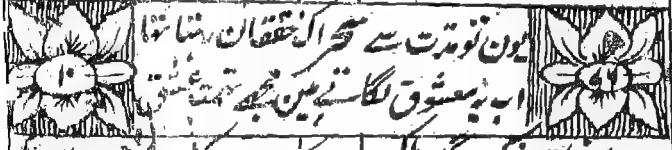 یون تو مدت سے سحر اک خفقان رہتا تھا
اب یہ معشوق لگاتے ہین تجھے تہمت عشق
۱۰